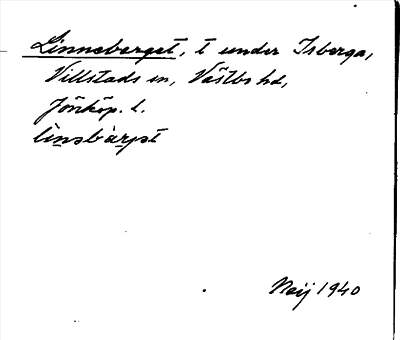 Linneberget, t under Isberga,
Villstads sn, Västbo hd,
Jönköp. l.
linsbàrgst
Neij 1940